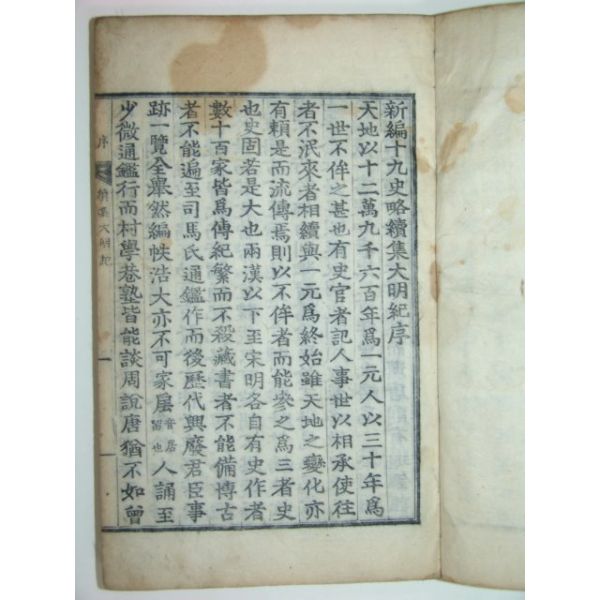 新編十九史略續集大明紀序
天地以十二萬九千六百年爲一元人以三十年爲
一世不侔之甚也有史官者記人事世以相承使往
者不泯來者相續與一元爲終始雖天地之變化亦
有賴是而流傳焉則以不侔者而能參之爲三者史
也史固若是大也兩漢以下至宋明各自有史作者
數十百家皆爲傳紀繁而不殺藏書者不能備博古
者不能遍至司馬氏通鑑作而後歷代興廢君臣事
跡一覽全舉然編帙浩大亦不可家屠音居留也人誦至
少微通鑑行而村學巷塾皆能談周說唐猶不如曾
序
續集大明紀
一